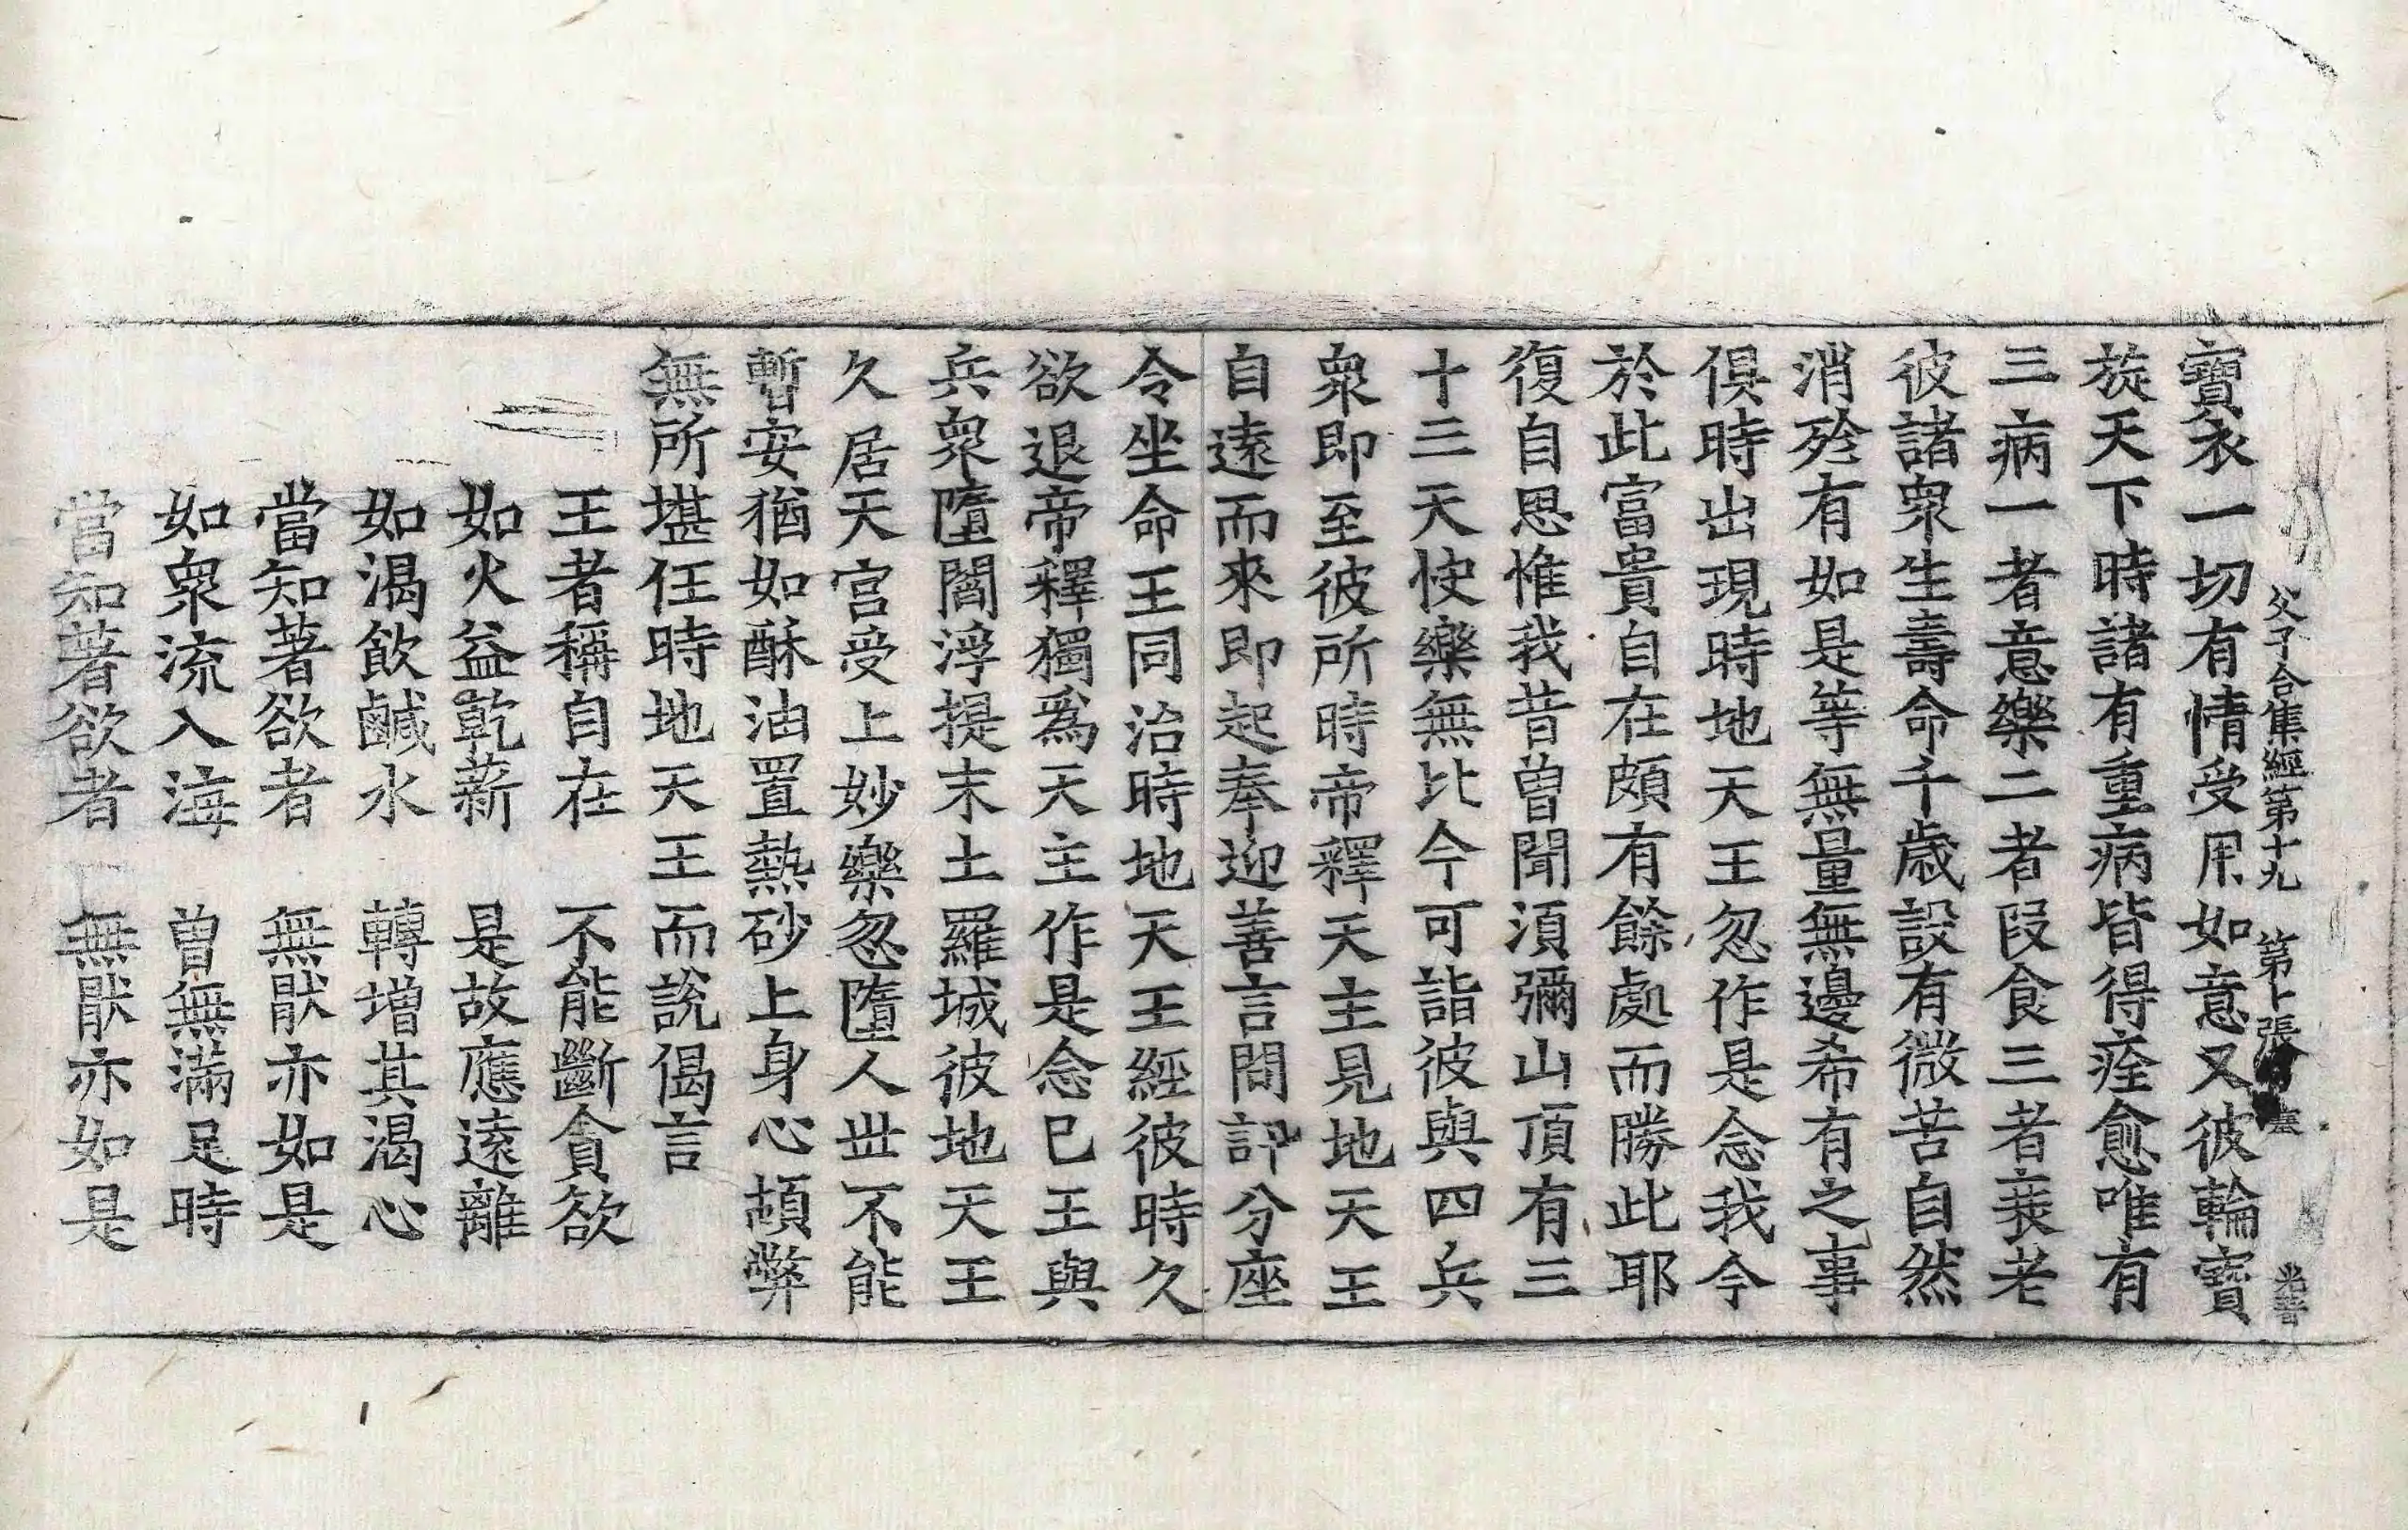 父子合集經第十九 第七張 塞 光善
寶衣一切有情受用如意又彼輪寶
旋天下時諸有重病皆得痊愈唯有
三病一者意樂二者段食三者衰老
彼諸衆生壽命千歲設有微苦自然
消殄有如是等無量無邊希有之事
俱時出現時地天王忽作是念我今
於此富貴自在頗有餘處而勝此耶
復自思惟我昔曾聞須彌山頂有三
十三天快樂無比今可詣彼與四兵
衆即至彼所時帝釋天主見地天王
自遠而來即起奉迎善言問訊分座
令坐命王同治時地天王經彼時久
欲退帝釋獨爲天主作是念已王與
兵衆墮閻浮提末土羅城彼地天王
久居天宮受上妙樂忽墮人丗不能
暫安猶如酥油置熱砂上身心頓弊
無所堪任時地天王而說偈言
王者稱自在 不能斷貪欲
如火益乾薪 是故應遠離
如渴飲鹹水 轉增其渴心
當知著欲者 無猒亦如是
如衆流入海 曾無滿足時
當知著欲者 無猒亦如是